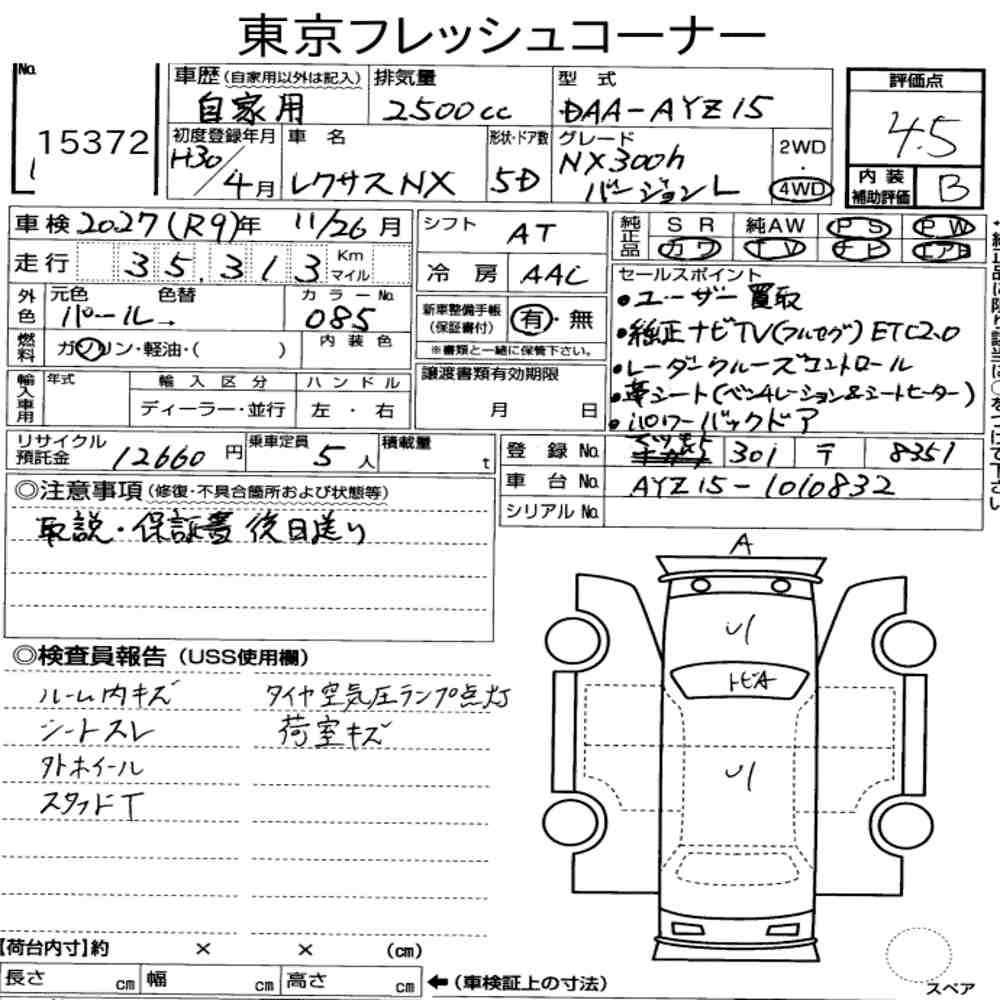 東京フレッシュコーナー
No. 15372
車歴(自家用以外は記入) 自家用
排気量 2500cc
型式 DAA-AYZ15
評価点 4.5
内装補助評価 B
初度登録年月 H30/4月
車名 レクサスNX
形状・ドア数 5D
グレード NX300h バージョンL
2WD・4WD
車検 2027(R9)年 11/26月
シフト AT
純正品 SR 純AW PS PW
カワ TV ナビ エアB
走行 35,313 Km マイル
冷房 AAC
セールスポイント
・ユーザー買取
・純正ナビTV(フルセグ)ETC2.0
・レーダークルーズコントロール
・革シート(ベンチレーション&シートヒーター)
・パワーバックドア
外色 元色 パール→ 色替
カラーNo. 085
内装色
新車整備手帳(保証書付) 有・無
※書類と一緒に保管下さい。
燃料 ガソリン・軽油・( )
譲渡書類有効期限 月 日
輸入車用 年式 輸入区分 ハンドル
ディーラー・並行 左・右
リサイクル預託金 12660円
乗車定員 5人
積載量 t
登録No. 301 〒 8351
車台No. AYZ15-1010832
シリアルNo.
◎注意事項(修復・不具合箇所および状態等)
取説・保証書 後日送り
◎検査員報告(USS使用欄)
ルーム内キズ タイヤ空気圧ランプ点灯
シートスレ 荷室キズ
外ホイール
スタッドT
A
トビA
【荷台内寸】約 × × (cm)
長さ cm 幅 cm 高さ cm ←(車検証上の寸法)
スペア